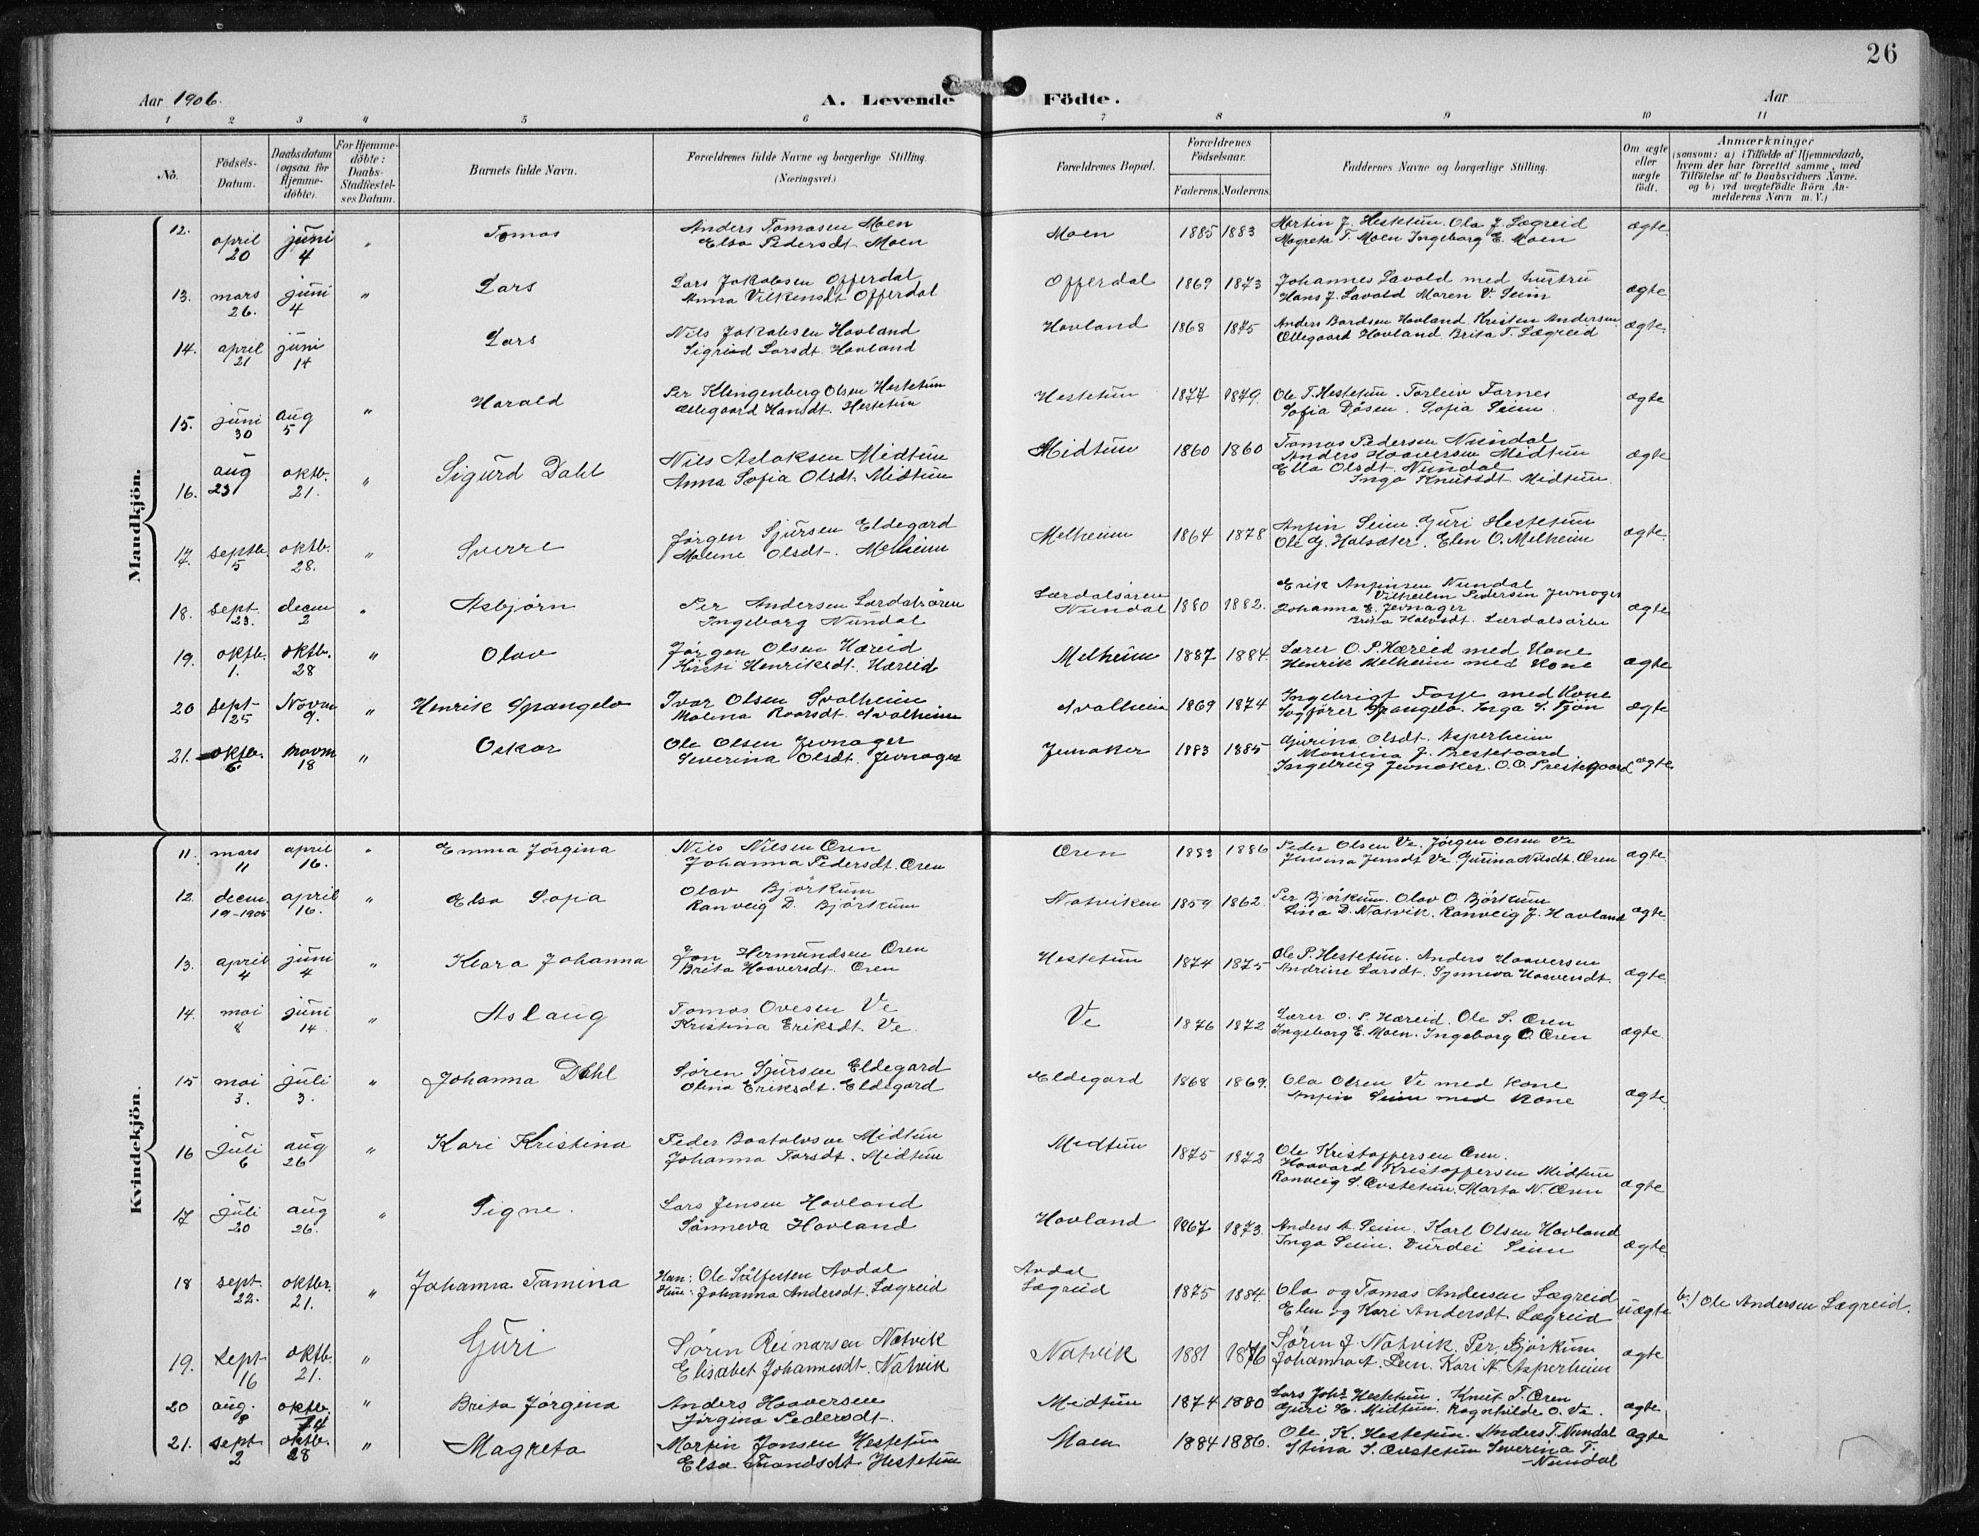 26
Aar 1906.
A. Levende Födte.
Aar
1 2 3 4 5 6 7 8 9 10 11
No.
Födsels-Datum.
Daabsdatum (ogsaa for Hjemmedöbte).
For Hjemmedöbte: Daabs-Stadfæstelses Datum.
Barnets fulde Navn.
Forældrenes fulde Navne og borgerlige Stilling. (Næringsvei.)
Forældrenes Bopæl.
Forældrenes Födselsaar.
Faderens. Moderens.
Faddernes Navne og borgerlige Stilling.
Om ægte eller uægte födt.
Anmærkninger
(saasom: a) i Tilfælde af Hjemmedaab,
hvem der har forrettet samme, med
Tilföielse af to Daabsvidners Navne.
og b) ved uægtefödte Börn An-
melderens Navn m. V.)
Mandkjön.
12. april 20 juni 4 " Tomas Anders Tomasen Moen Moen 1885 1883 Martin J. Hestetun. Ola J. Lægreid ægte
Elsa Pedersdt. Moen Magreta T. Moen Ingeborg E. Moen
13. mars 26. juni 4 " Lars Lars Jakobsen Offerdal Offerdal 1869 1873 Johannes Lavold med hustru ægte
Anna Vilkensdt Offerdal Hans J. Lavold Maren V. Seim
14. april 21 juni 14 " Lars Nils Jakobsen Hovland Hovland 1868 1875 Anders Bardsen Hovland Kristen Andersen ægte
Sigriad Larsdt. Hovland Ollegaard Hovland Brita T. Lægreid
15. juni 30 aug 5 " Harald Per Klingenberg Olsen Hestetun Hestetun 1877 1879. Ole T. Hestetun. Torleiv Farnes ægte
Ollegaard Hansdt. Hestetun Sofia Døsen. Sofia Seim.
16. aug 23 oktb. 21. " Sigurd Dahl Nils Aslaksen Midtun Midtun 1860 1860 Tomas Pedersen Nundal ægte
Anna Sofia Olsdt. Midtun Anders Haaversen Midtun
Ella Olsdt Nundal
Inga Knutsdt Midtun.
17. septb. 5 oktb. 28. " Sverre Jørgen Sjursen Eldegard Melheim 1864 1878 Anfin Seim Guri Hestetun ægte
Malene Olsdt. Melheim Ole G. Halsæter. Elen O. Melheim
18. sept. 23. decem 2 " Asbjørn Per Andersen Lærdalsøren Lærdalsøren Nundal 1880 1882. Erik Anfinsen Nundal ægte
Ingeborg Nundal Vilhelm Pedersen Jevnager
Johanna E. Jevnager
Brita Halvsdt. Lærdalsøren
19. oktb. 1. oktb. 28 " Olav Jørgen Olsen Hæreid Melheim 1887 1884. Lærer O. P. Hæreid med Kone ægte
Kirsti Henriksdt. Hæreid Henrik Melheim med Kone
20 sept 25 Novm 9. " Henrik Spangelo Ivar Olsen Svalheim Svalheim 1869 1874 Ingebrigt Foyje med Kone ægte
Malena Roarsdt. Svalheim Sagfører Spangelo. Inga S. Tjön
21. oktb. 6 novm 18 " Oskar Ole Olsen Jevnager Jevnaker 1883 1885 Gjurina Olsdt. Asperheim ægte
Severina Olsdt. Jevnager Monsina J. Prestegaard
Ingebrig Jevnaker. O. O. Prestegaard
Kvindekjön.
11. mars 11 april 16. " Emma Jörgina Nils Nilsen Øren Øren 1883 1886 Peder Olsen Ve. Jørgen Olsen Ve ægte
Johanna Pedersdt. Øren Jensina Jensdt Ve Gurina Nilsdt. Øren
12. decem. 19-1905 april 16. " Elsa Sofia Olav Bjørkum Natviken 1859 1862. Per Bjørkum. Olav O. Bjørkum ægte
Ranveig D. Bjørkum Lina D. Natvik. Ranveig J. Hovland
13. april 4 juni 4 " Klara Johanna Jon Hermundsen Øren Hestetun 1874 1875 Ole P. Hestetun. Anders Haaversen ægte
Brita Haaversdt. Øren Andrine Larsdt. Synneva Haaversdt.
14. mai 8 juni 14 " Aslaug Tomas Ovesen Ve Ve 1876 1872 Lærer O. P. Hæreid. Ole S. Øren ægte
Kristina Eriksdt. Ve. Ingeborg E. Moen. Ingeborg O. Øren
15 mai 3. juli 3. " Johanna Dahl Søren Sjursen Eldegard Eldegard 1868 1869. Ola Olsen Ve med Kone ægte.
Olina Eriksdt. Eldegard Anfin Seim med Kone
16 juli 6 aug 26 " Kari Kristina Peder Baatolvsen Midtun Midtun 1875 1873 Ole Kristoffersen Øren. ægte
Johanna Tarsdt. Midtun Haavard Kristoffersen Midtun
Ranveig S. Øvstetun. Marta N. Øren
17 juli 20 aug 26. " Signe. Lars Jensen Hovland Hovland 1867 1873. Anders A. Seim. Karl Olsen Hovland ægte
Sønneva Hovland Inga Seim. Durdei Seim
18 sept. 22. oktbr. 21. " Johanna Tomina Han: Ole Sølfesten Avdal Avdal 1875 1884. Ola og Tomas Andersen Lægreid uægte b.) Ole Andersen Lægreid.
Hun: Johanna Andersdt. Lægreid Lægreid Elen og Kari Andersdt Lægreid
19. sept 16 oktb. 21. " Guri Søren Reinarsen Natvik Natvik 1881 1876 Søren J. Natvik. Per Bjørkum ægte
Elisabet Johannesdt. Natvik Johanna A. Lem. Kari N. Asperheim
20 aug. 8 oktb. 14 " Brita Jørgina Anders Haaversen Midtun 1874 1880 Lars Johs Hestetun. Knut T. Øren ægte
Jørgina Pedersdt. Guri H. Midtun. Ragnhilde O. Ve.
21. sept 2 oktb. 28 " Magreta Martin Jonsen Hestetun Moen 1884 1886. Ole K. Hestetun. Anders T. Nundal ægte
Elsa Trandsdt Hestetun Stina S. Øvstetun Severina T.
Nundal